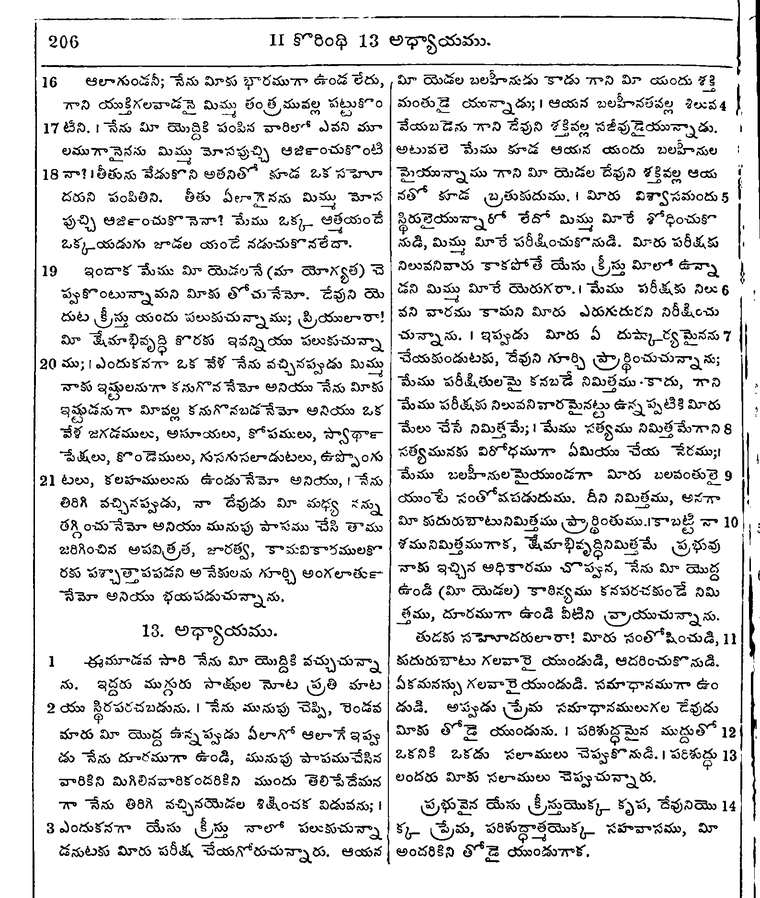 206
II కొరింథి 13 అధ్యాయము.
16 ఆలాగుండనీ; నేను మీకు భారముగా ఉండ లేదు,
గాని యుక్తిగలవాడనై మిమ్ము తంత్రమువల్ల పట్టుకొం
17 టిని. । నేను మీ యొద్దికి పంపిన వారిలో ఎవని మూ
లముగానైనను మిమ్ము మోసపుచ్చి ఆర్జించుకొంటి
18 నా? । తీతును వేడుకొని అతనితో కూడ ఒక సహో
దరుని పంపితిని. తీతు ఏలాగైనను మిమ్ము మోస
పుచ్చి ఆర్జించుకొనెనా? మేము ఒక్క ఆత్మయందే
ఒక్కయడుగు జాడల యందే నడుచుకొనలేదా.
19 ఇందాక మేము మీ యెడలనే (మా యోగ్యత) చె
ప్పుకొంటున్నామని మీకు తోచునేమో. దేవుని యె
దుట క్రీస్తు యందు పలుకుచున్నాము; ప్రియులారా!
మీ క్షేమాభివృద్ధి కొరకు ఇవన్నియు పలుకుచున్నా
20 ము; । ఎందుకనగా ఒక వేళ నేను వచ్చినప్పుడు మిమ్ము
నాకు ఇష్టులనుగా కనుగొన నేమో అనియు నేను మీకు
ఇష్టుడనుగా మీవల్ల కనుగొనబడనేమో అనియు ఒక
వేళ జగడములు, అసూయలు, కోపములు, స్వార్థా
పేక్షలు, కొండెములు, గుసగుసలాడుటలు, ఉప్పొంగు
21 టలు, కలహములును ఉండునేమో అనియు, । నేను
తిరిగి వచ్చినప్పుడు, నా దేవుడు మీ మధ్య నన్ను
తగ్గించునేమో అనియు మునుపు పాపము చేసి తాము
జరిగించిన అపవిత్రత, జారత్వ, కామవికారములకొ
రకు పశ్చాత్తాపపడని అనేకులను గూర్చి అంగలార్తు
నేమో అనియు భయపడుచున్నాను.
13. అధ్యాయము.
1 ఈమూడవ సారి నేను మీ యొద్దికి వచ్చుచున్నా
ను. ఇద్దరు ముగ్గురు సాక్షుల నోట ప్రతి మాట
2 యు స్థిరపరచబడును. । నేను మునుపు చెప్పి, రెండవ
మారు మీ యొద్ద ఉన్నప్పుడు ఏలాగో ఆలాగే ఇప్పు
డు నేను దూరముగా ఉండి, మునుపు పాపముచేసిన
వారికిని మిగిలినవారికందరికిని ముందు తెలిపేదేమన
గా నేను తిరిగి వచ్చినయెడల శిక్షించక విడువను; ।
3 ఎందుకనగా యేసు క్రీస్తు నాలో పలుకుచున్నా
డనుటకు మీరు పరీక్ష చేయగోరుచున్నారు. ఆయన
మీ యెడల బలహీనుడు కాడు గాని మీ యందు శక్తి
మంతుడై యున్నాడు; । ఆయన బలహీనతవల్ల శిలువ 4
వేయబడెను గాని దేవుని శక్తివల్ల సజీవుడైయున్నాడు.
అటువలె మేము కూడ ఆయన యందు బలహీనుల
మైయున్నాము గాని మీ యెడల దేవుని శక్తివల్ల ఆయ
నతో కూడ బ్రతుకుదుము. । మీరు విశ్వాసమందు 5
స్థిరులైయున్నారో లేదో మిమ్ము మీరే శోధించుకొ
నుడి, మిమ్ము మీరే పరీక్షించుకొనుడి. మీరు పరీక్షకు
నిలువనివారు కాకపోతే యేసు క్రీస్తు మీలో ఉన్నా
డని మిమ్ము మీరే యెరుగరా. । మేము పరీక్షకు నిలు 6
వని వారము కామని మీరు ఎరుగుదురని నిరీక్షించు
చున్నాను. । ఇప్పుడు మీరు ఏ దుష్కార్యమైనను 7
చేయకుండుటకు, దేవుని గూర్చి ప్రార్థించుచున్నాను;
మేము పరీక్షితులమై కనబడే నిమిత్తము కాదు, గాని
మేము పరీక్షకు నిలువనివారమైనట్టు ఉన్నప్పటికి మీరు
మేలు చేసే నిమిత్తమే; । మేము సత్యము నిమిత్తమేగాని 8
సత్యమునకు విరోధముగా ఏమియు చేయ నేరము; ।
మేము బలహీనులమైయుండగా మీరు బలవంతులై 9
యుంటే సంతోషపడుదుము. దీని నిమిత్తము, అనగా
మీ కుదురుబాటునిమిత్తము ప్రార్థింతుము. । కాబట్టి నా 10
శమునిమిత్తముగాక, క్షేమాభివృద్ధినిమిత్తమే ప్రభువు
నాకు ఇచ్చిన అధికారము చొప్పున, నేను మీ యొద్ద
ఉండి (మీ యెడల) కాఠిన్యము కనపరచకుండే నిమి
త్తము, దూరముగా ఉండి వీటిని వ్రాయుచున్నాను.
తుదకు సహోదరులారా! మీరు సంతోషించుడి, 11
కుదురుబాటు గలవారై యుండుడి, ఆదరించుకొనుడి.
ఏకమనస్సు గలవారైయుండుడి. సమాధానముగా ఉం
డుడి. అప్పుడు ప్రేమ సమాధానములుగల దేవుడు
మీకు తోడై యుండును. । పరిశుద్ధమైన ముద్దుతో 12
ఒకనికి ఒకడు సలాములు చెప్పుకొనుడి. । పరిశుద్ధు 13
లందరు మీకు సలాములు చెప్పుచున్నారు.
ప్రభువైన యేసు క్రీస్తుయొక్క కృప, దేవునియొ 14
క్క ప్రేమ, పరిశుద్ధాత్మయొక్క సహవాసము, మీ
అందరికిని తోడై యుండుగాక.